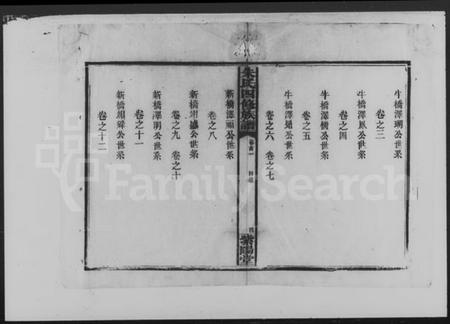 牛橋澤珊公世系
卷之三
牛橋澤鳳公世系
卷之四
牛橋澤儒公世系
卷之五
牛橋澤楚公世系
卷之六 卷之七
朱氏四修族譜
卷首一
目錄
紫陽堂
新橋澤 公世系
卷之八
新橋 公世系
卷之九 卷之十
新橋澤明公世系
卷之十一
新橋 舜公世系
卷之十二
FamilySearch